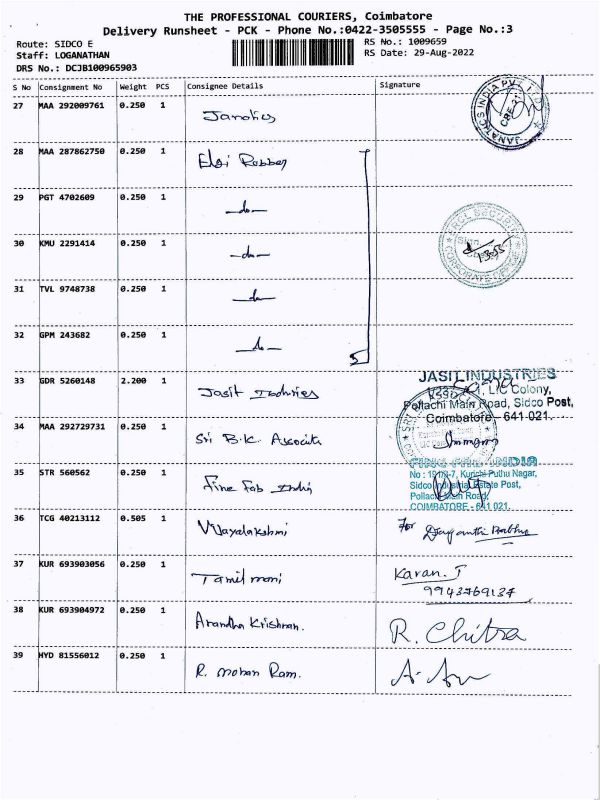 THE PROFESSIONAL COURIERS, Coimbatore
Delivery Runsheet - PCK - Phone No.:0422-3505555 - Page No.:3
Route: SIDCO E
RS No.: 1009659
Staff: LOGANATHAN
RS Date: 29-Aug-2022
DRS No.: DCJB100965903
S No Consignment No Weight PCS Consignee Details Signature
27 MAA 292009761 0.250 1 Janatics
JANATICS INDIA PVT LTD
28 MAA 287862750 0.250 1 Elgi Rubber
29 PGT 4702609 0.250 1 -do-
30 KMU 2291414 0.250 1 -do-
SECURITY
CORPORATE OFFICE
31 TVL 9748738 0.250 1 -do-
32 GPM 243682 0.250 1 -do-
5
33 GDR 5260148 2.200 1 Jasit Industries
JASIT INDUSTRIES
LIC Colony,
Pollachi Main Road, Sidco Post,
Coimbatore - 641 021.
34 MAA 292729731 0.250 1 Sri B.K. Associats
35 STR 560562 0.250 1 Fine Fab India
FINE FAB INDIA
Kurichi Puthu Nagar,
Sidco Industrial Estate Post,
Pollachi Main Road,
COIMBATORE - 641 021.
36 TCG 40213112 0.505 1 Vijayalakshmi For Jayanthi Prabhu
37 KUR 693903056 0.250 1 Tamil mani Karan. J
9943769134
38 KUR 693904972 0.250 1 Anandha Krishnan. R. Chitra
39 HYD 81556012 0.250 1 R. Mohan Ram.